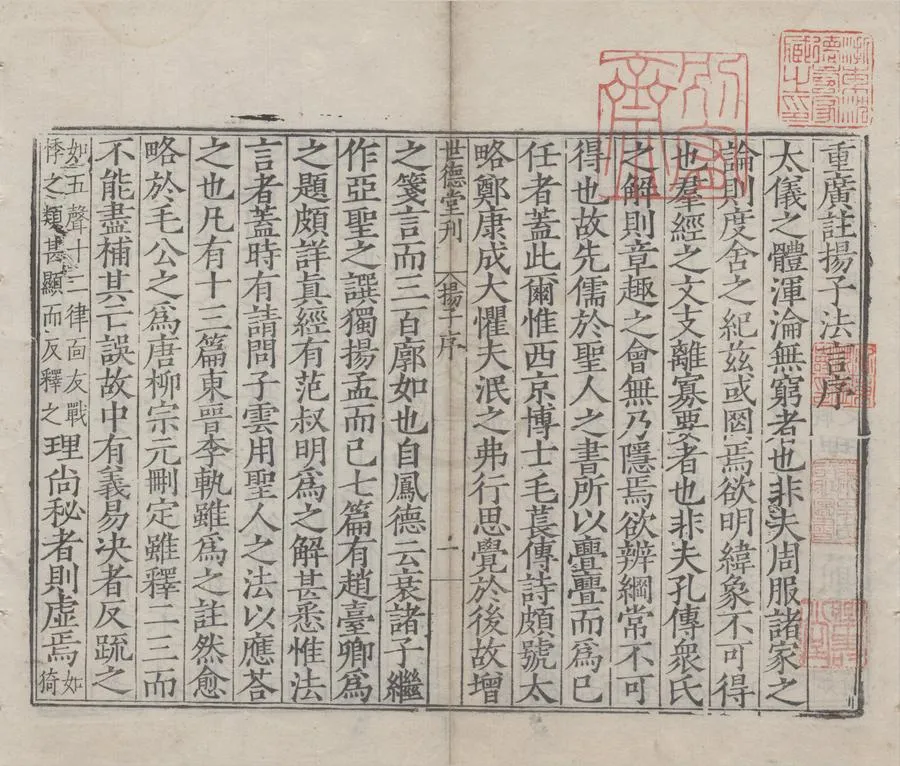 重廣註揚子法言序
太儀之體渾淪無窮者也非夫周服諸家之
論則度舍之紀茲或罔焉欲明緯象不可得
也羣經之文支離寡要者也非夫孔傳衆氏
之解則章趣之會無乃隱焉欲辨綱常不可
得也故先儒於聖人之書所以亹亹而爲己
任者蓋此爾惟西京博士毛萇傳詩頗號太
略鄭康成大懼夫泯之弗行思覺於後故增
世德堂刊 揚子序 一
之箋言而三百廓如也自鳳德云衰諸子繼
作亞聖之譔獨揚孟而已七篇有趙臺卿爲
之題頗詳真經有范叔明爲之解甚悉惟法
言者蓋時有請問子雲用聖人之法以應荅
之也凡有十三篇東晉李軌雖爲之註然愈
略於毛公之爲唐柳宗元刪定雖釋二三而
不能盡補其亡誤故中有義易決者反䟽之
如五聲十二律面友戰
悸之類甚顯而反釋之
理尚秘者則虛焉
如
猗